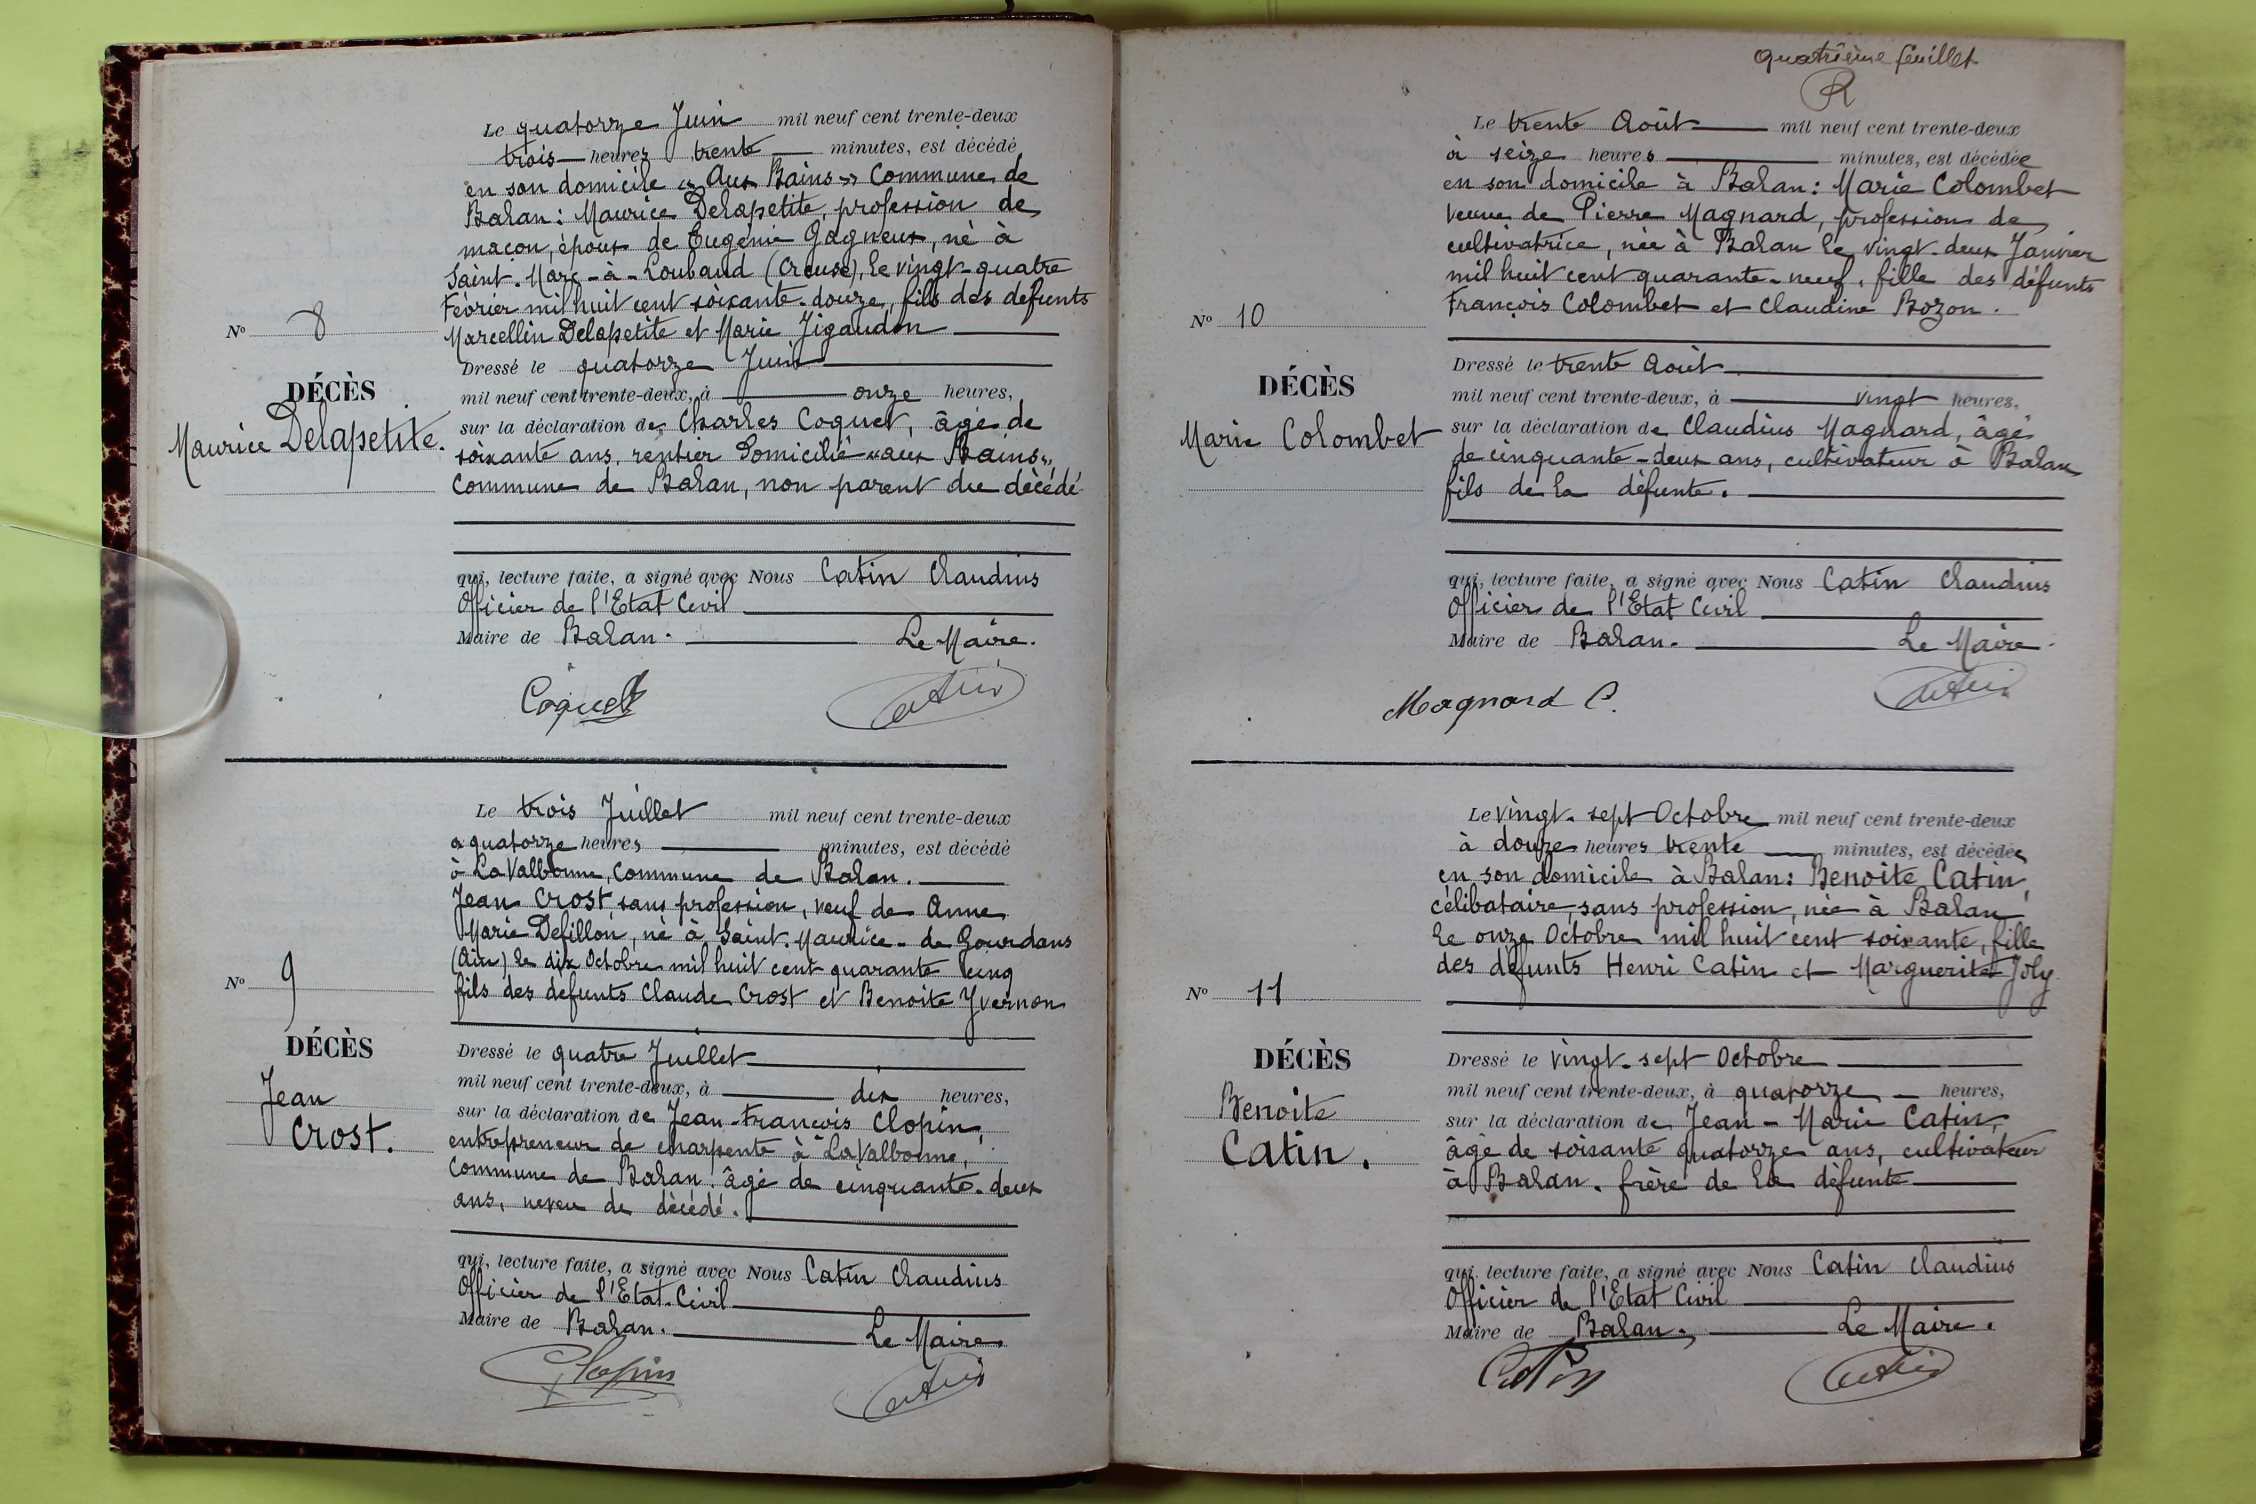 Le quatorze Juin mil neuf cent trente-deux
trois heures trente minutes, est décédé
en son domicile « Aux Bains » Commune de
Balan : Maurice Delapetite, profession de
maçon, époux de Eugénie Gagneux, né à
Saint-Marc-à-Loubaud (Creuse), le vingt-quatre
Février mil huit cent soixante-douze, fils des défunts
Marcellin Delapetite et Marie Jigaudon
Dressé le quatorze Juin
mil neuf cent trente-deux, à onze heures,
sur la déclaration de Charles Coquet, âgé de
soixante ans, rentier domicilié « aux Bains »,
Commune de Balan, non parent du décédé
qui, lecture faite, a signé avec Nous Catin Claudius
Officier de l'Etat Civil
Maire de Balan. Le Maire.
Coquet Catin
N° 8
DÉCÈS
Maurice Delapetite.
Le trois Juillet mil neuf cent trente-deux
à quatorze heures minutes, est décédé
à La Valbonne, Commune de Balan.
Jean Crost, sans profession, veuf de Anne
Marie Defillon, né à Saint-Maurice-de Gourdans
(Ain) le dix Octobre mil huit cent quarante cinq
fils des défunts Claude Crost et Benoite Yvernon
Dressé le quatre Juillet
mil neuf cent trente-deux, à dix heures,
sur la déclaration de Jean-François Clopin,
entrepreneur de charpente à La Valbonne,
Commune de Balan, âgé de cinquante-deux
ans, neveu de décédé.
qui, lecture faite, a signé avec Nous Catin Claudius
Officier de l'Etat-Civil
Maire de Balan. Le Maire.
Clopin Catin
N° 9
DÉCÈS
Jean
Crost.
quatrième feuillet
Le trente Août mil neuf cent trente-deux
à seize heures minutes, est décédée
en son domicile à Balan : Marie Colombet
veuve de Pierre Magnard, profession de
cultivatrice, née à Balan le vingt-deux Janvier
mil huit cent quarante-neuf, fille des défunts
François Colombet et Claudine Bozon.
Dressé le trente Août
mil neuf cent trente-deux, à vingt heures,
sur la déclaration de Claudius Magnard, âgé
de cinquante-deux ans, cultivateur à Balan
fils de la défunte.
qui, lecture faite, a signé avec Nous Catin Claudius
Officier de l'Etat Civil
Maire de Balan. Le Maire.
Magnard C. Catin
N° 10
DÉCÈS
Marie Colombet
Le vingt-sept Octobre mil neuf cent trente-deux
à douze heures trente minutes, est décédée
en son domicile à Balan : Benoite Catin,
célibataire, sans profession, née à Balan
le onze Octobre mil huit cent soixante, fille
des défunts Henri Catin et Marguerite Joly
Dressé le vingt-sept Octobre
mil neuf cent trente-deux, à quatorze heures,
sur la déclaration de Jean-Marie Catin,
âgé de soixante quatorze ans, cultivateur
à Balan. frère de la défunte
qui, lecture faite, a signé avec Nous Catin Claudius
Officier de l'Etat Civil
Maire de Balan. Le Maire.
Catin Catin
N° 11
DÉCÈS
Benoite
Catin.